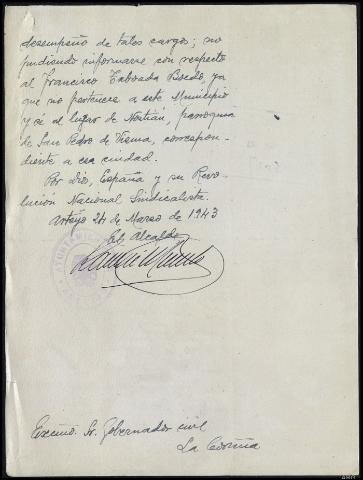 desempeño de tales cargos; no
pudiendo informarse con respecto
al Francisco Taboada Boedo, ya
que no pertenece a este Municipio
y sí al lugar de Nostián, parroquia
de San Pedro de Visma, correspon-
diente a esa ciudad.
Por Dios, España y su Revo-
lución Nacional Sindicalista.
Arteijo 24 de Marzo de 1943
El Alcalde
Excmo. Sr. Gobernador civil
La Coruña